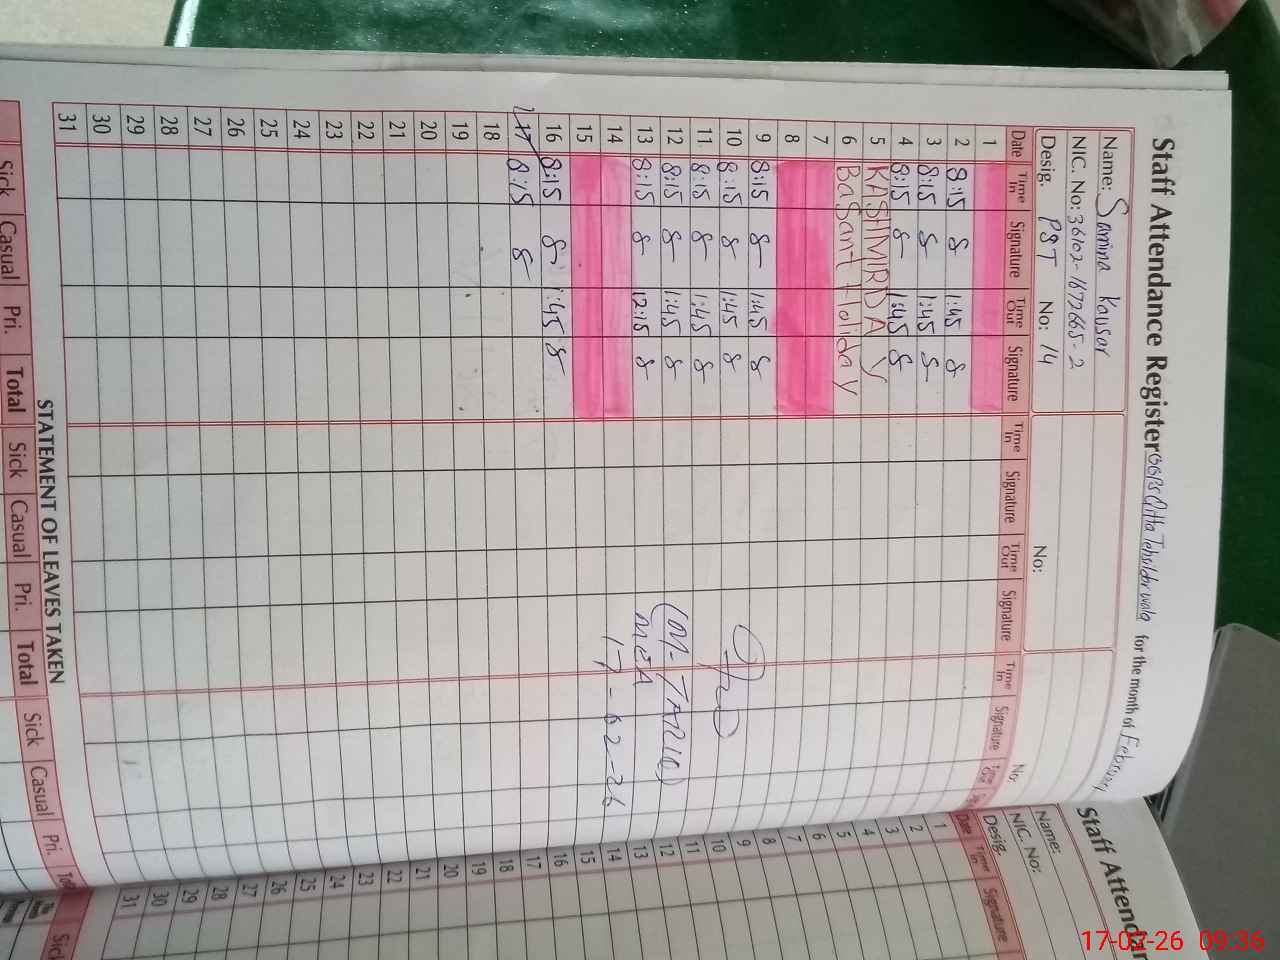 Staff Attendance Register GGPS Qitta Tehsildar wala for the month of February
Name: Samina Kausar
NIC. No: 36102-1677665-2
Desig. PST No: 14 No: No:
Date Time In Signature Time Out Signature Time In Signature Time Out Signature Time In Signature Time Out
1
2 8:15 1:45
3 8:15 1:45
4 8:15 1:45
5 KASHMIR DAY
6 Basant Holiday
7
8
9 8:15 1:45
10 8:15 1:45
11 8:15 1:45
12 8:15 1:45
13 8:15 12:15
14
15
16 8:15 1:45
17 8:15
18
19
20
21
22
23
24
25
26
27
28
29
30
31
MEA
17-02-26
STATEMENT OF LEAVES TAKEN
Sick Casual Pri. Total Sick Casual Pri. Total Sick Casual Pri.
Staff Attend
Name:
NIC. No:
Desig.
Date Time In Signature
1
2
3
4
5
6
7
8
9
10
11
12
13
14
15
16
17
18
19
20
21
22
23
24
25
26
27
28
29
30
31
Sick
17-02-26 09:36